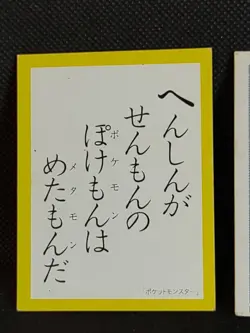 へんしんが
せんもんの
ぽけもんは
ポケモン
めたもんだ
メタモン
「ポケットモンスター」